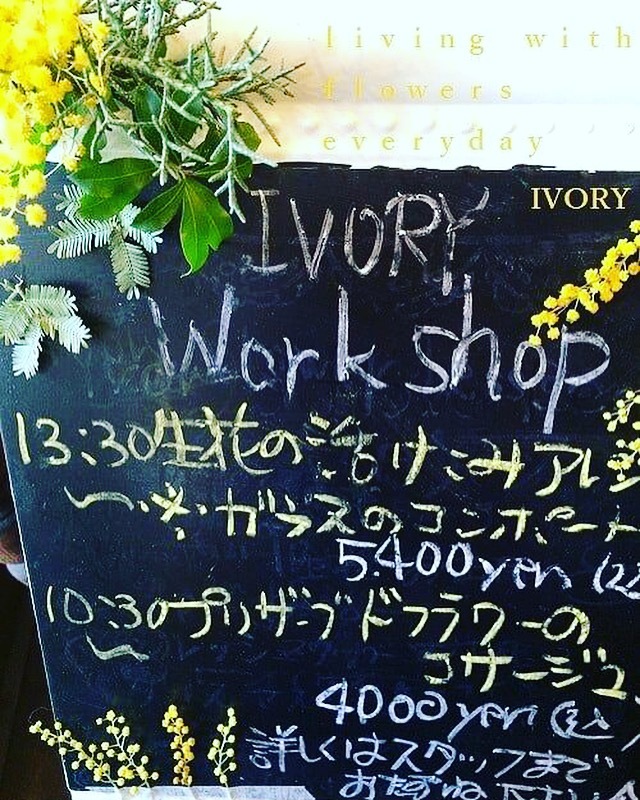 living with
flowers
everyday
IVORY
IVORY
Workshop
13:30 生花の活けこみアレ
〜 ※ガラスのコンポート
5.400yen (
10:30 プリザーブドフラワーの
〜
コサージュ
4000yen (込)
詳しくはスタッフまで
おたずね下さい